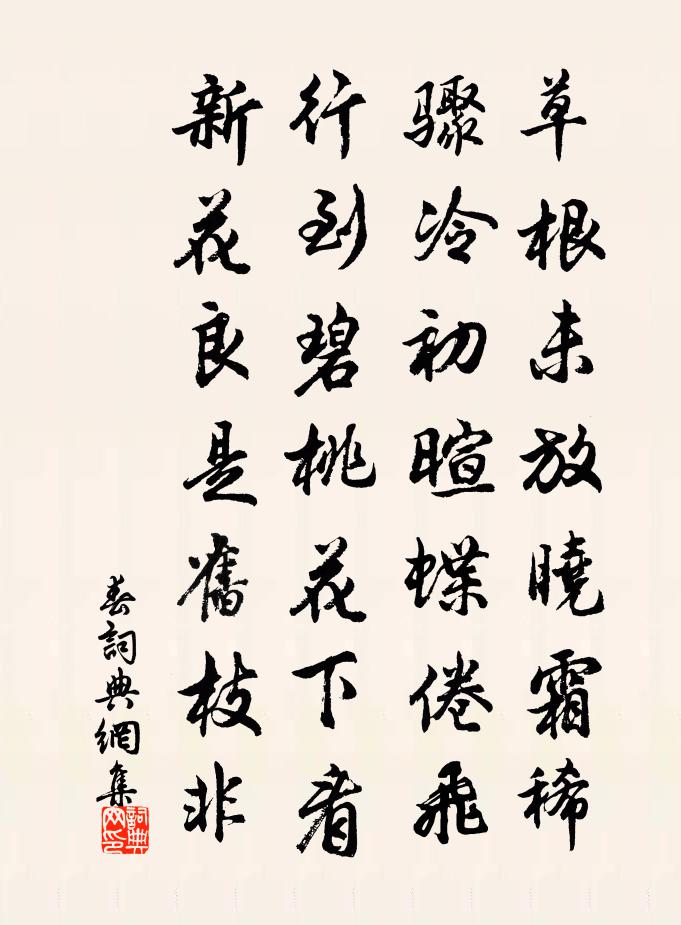 草根未放曉霜稀
驟冷初暄蝶倦飛
行到碧桃花下看
新花良是舊枝非
春詞典網集
詞典网印